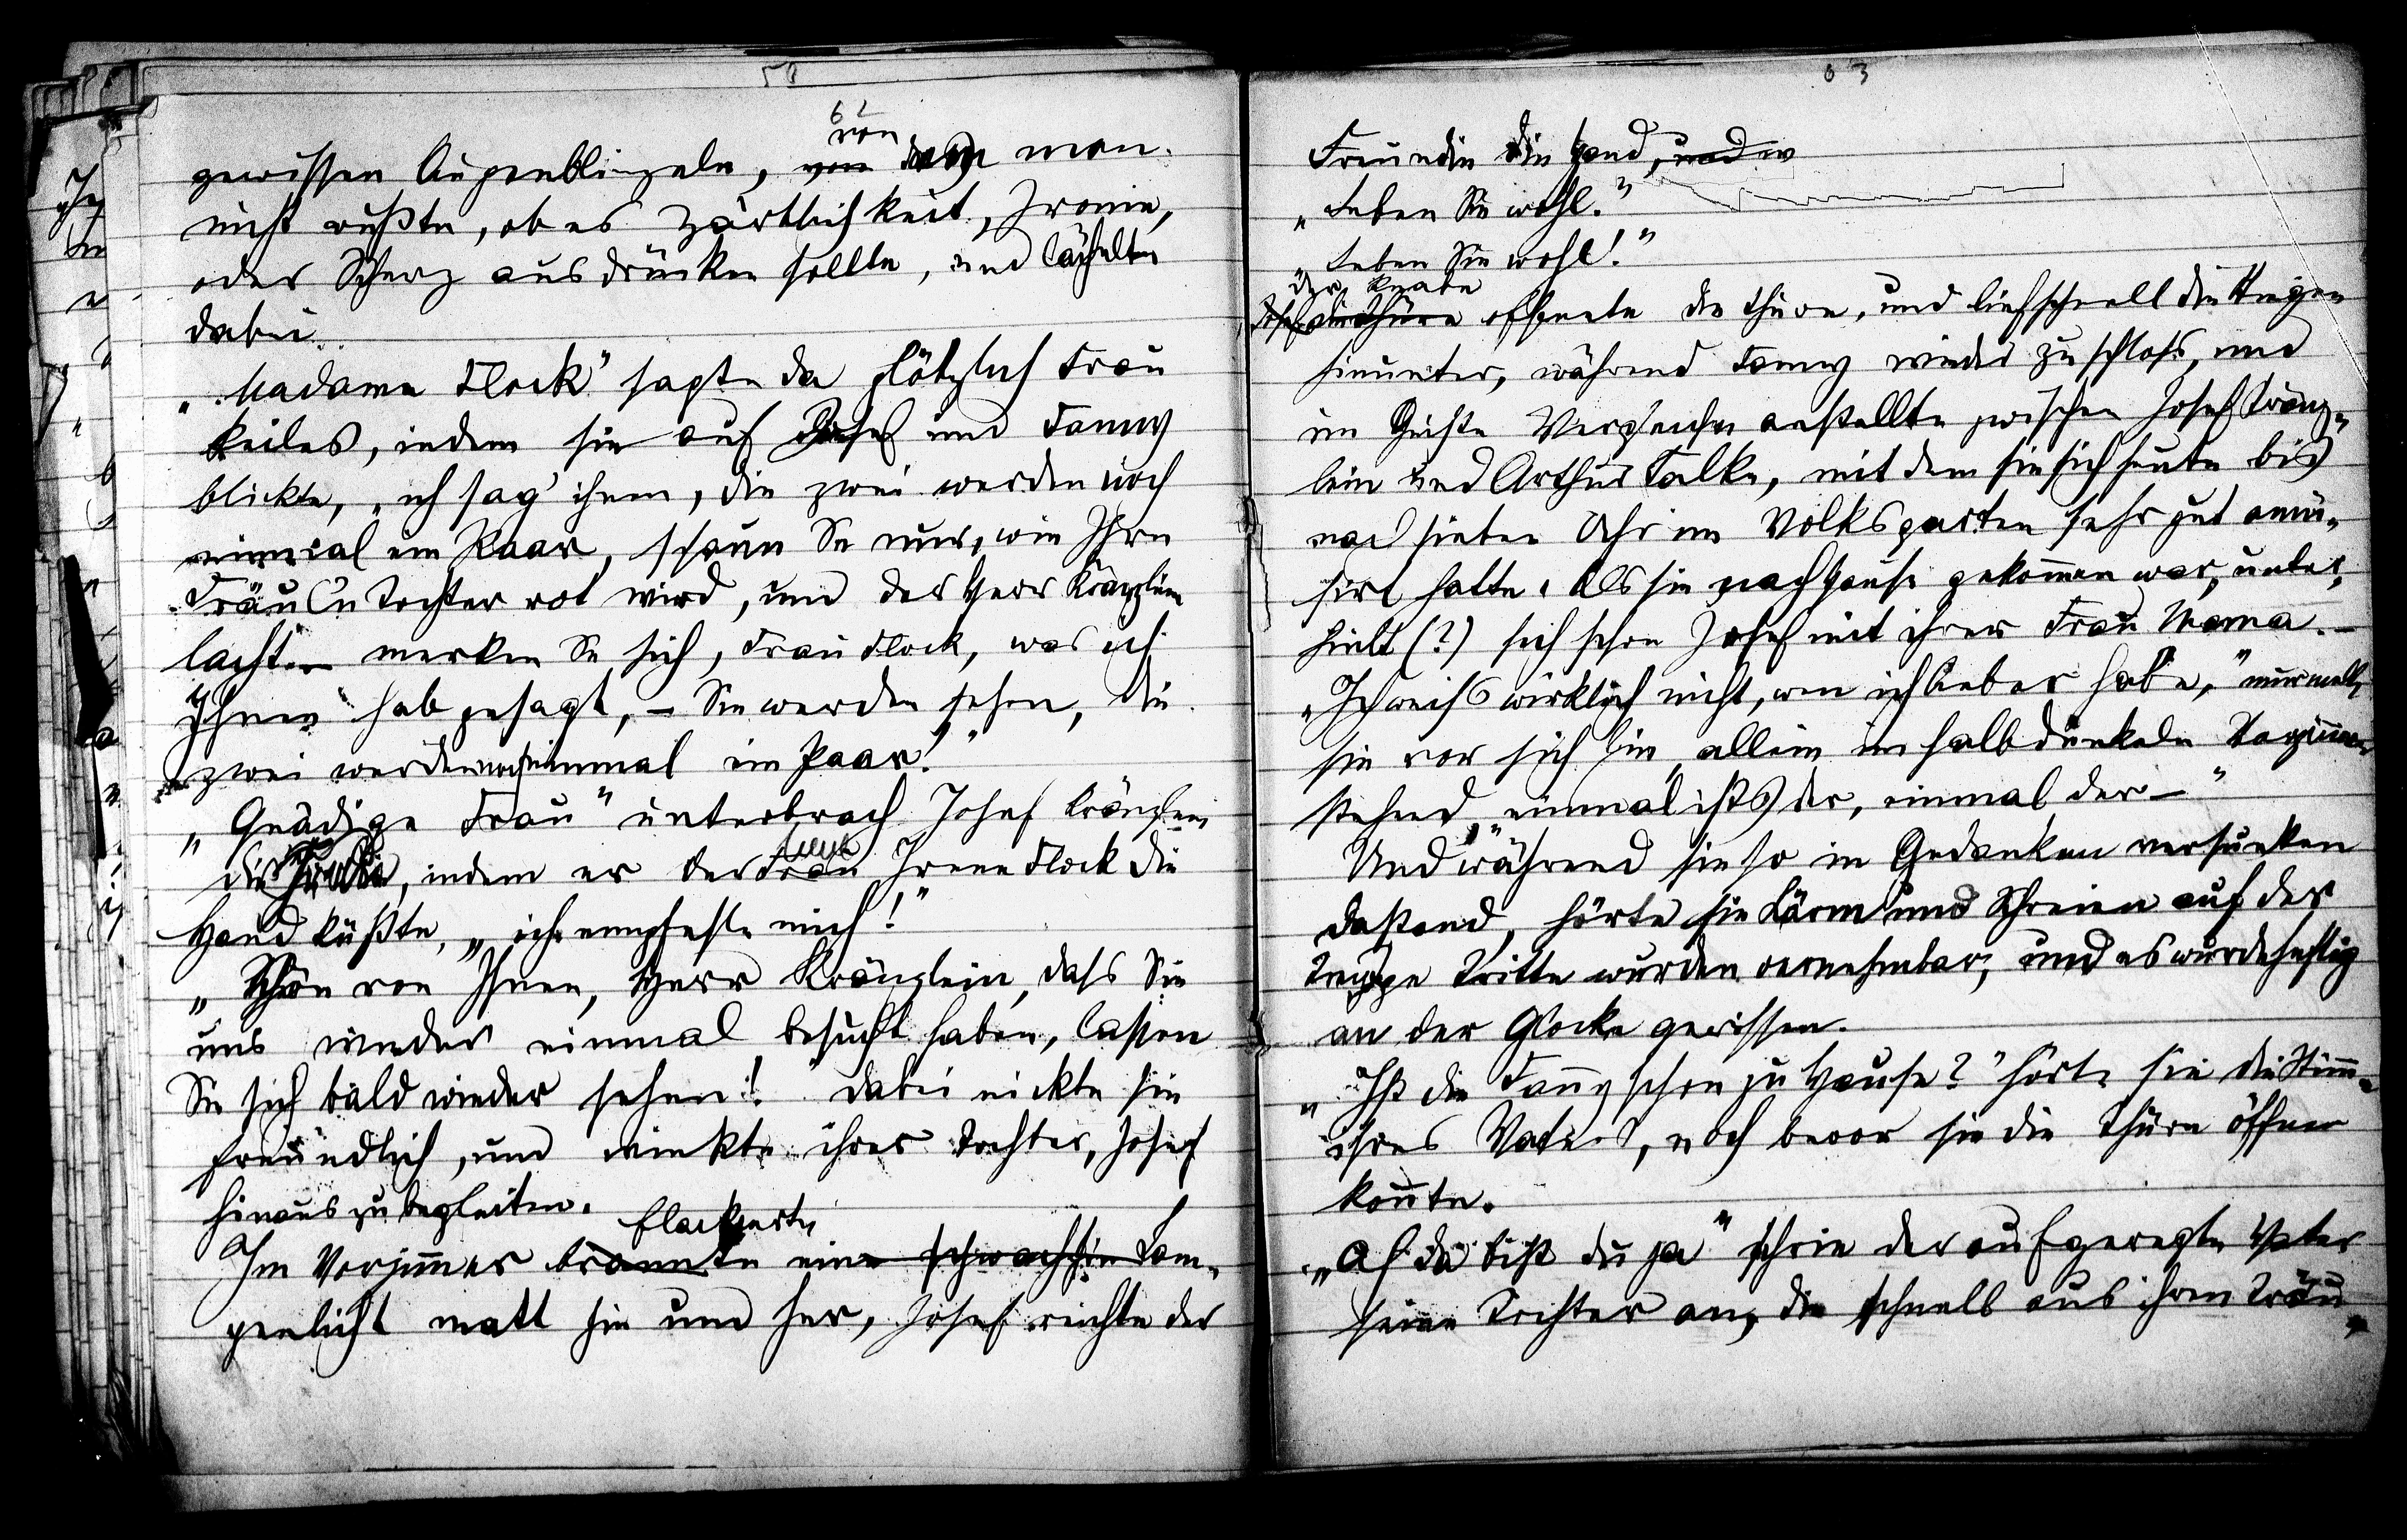 58
62
gewissen Augenblinzeln, von dem man
nicht wußte, ob es Zärtlichkeit, Ironie,
oder Scherz ausdrücken sollte, und lächelte
dabei.
„Madame Flock" sagte da plötzlich Frau
Keiles, indem sie auf Josef und Fanny
blickte, „ich sag' ihnen, die zwei werden noch
einmal ein Paar, schaun Se nur, wie Ihre
Fräul'n Tochter rot wird, und der Herr Kränzlein
lacht. – merken Se sich, Frau Flock, was ich
Ihnen hab gesagt, – Sie werden sehen, die
zwei werden noch einmal ein Paar!"
„Gnädige Frau" unterbrach Josef Kränzlein
die, indem er der Frau Irene Flock die
Hand küßte, „ich empfehle mich!"
„Schön von Ihnen, Herr Kränzlein, dass Sie
uns wieder einmal besucht haben, lassen
Sie sich bald wieder sehen!" dabei nickte sie
freundlich, und winkte ihrer Tochter, Josef
hinaus zu begleiten.
flackerte
Im Vorzimmer brannte eine schwache Lam-
penlicht matt hin und her, Josef reichte der
63
Freundin die Hand, und w
„Leben Sie wohl."
„Leben Sie wohl!"
Der Knabe
Josef die Thüre öffnete die Thüre, und lief schnell die Stiegen
hinunter, während Fanny wieder zuschloss, und
im Geiste Vergleiche anstellte zwischen Josef Kränz-
lein und Arthur Falke, mit dem sie sich heute bis
nach sieben Uhr im Volksgarten sehr gut amü-
sirt hatte. Als sie nach Hause gekommen war, unter-
hielt (?) sich schon Josef mit ihrer Frau Mama. –
„Ich weiss wirklich nicht, wen ich lieber habe," murmelte
sie vor sich hin, allein im halbdunkeln Vorzimmer
stehend, „einmal ists der, einmal der –"
Und während sie so in Gedanken versunken
dastand, hörte sie Lärm und Schreien auf der
Treppe Tritte wurden vernehmbar, und es wurde heftig
an der Glocke gerissen.
„Ist die Fanny schon zu Hause?" hörte sie die Stimme
ihres Vaters, noch bevor sie die Thüre öffnen
konnte.
„Ah da bist du ja" schrie der aufgeregte Vater
seine Tochter an, die schnell aus ihren Träu-